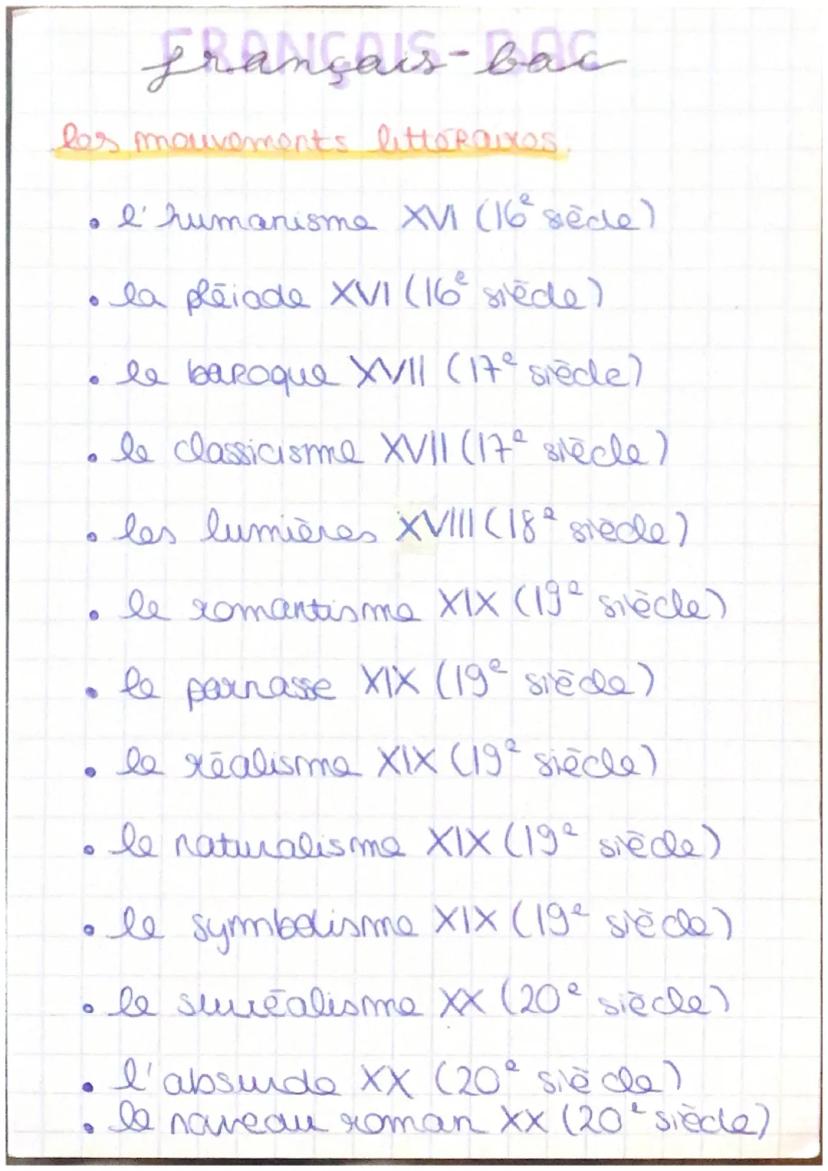 FRANÇAIS-BAC
français-bac
les mouvements littéraires.
• l'humanisme XVI (16e siècle)
• la plēiade XVI (16e siècle)
• le baroque XVII (17e siècle)
• le classicisme XVII (17e siècle)
• les lumières XVIII (18e siècle)
• le romantisme XIX (19e siècle)
• le parnasse XIX (19e siècle)
• le réalisme XIX (19e siècle)
• le naturalisme XIX (19e siècle)
• le symbolisme XIX (19e siècle)
• le surréalisme XX (20e siècle)
• l'absurde XX (20e siècle)
• le nouveau roman XX (20e siècle)